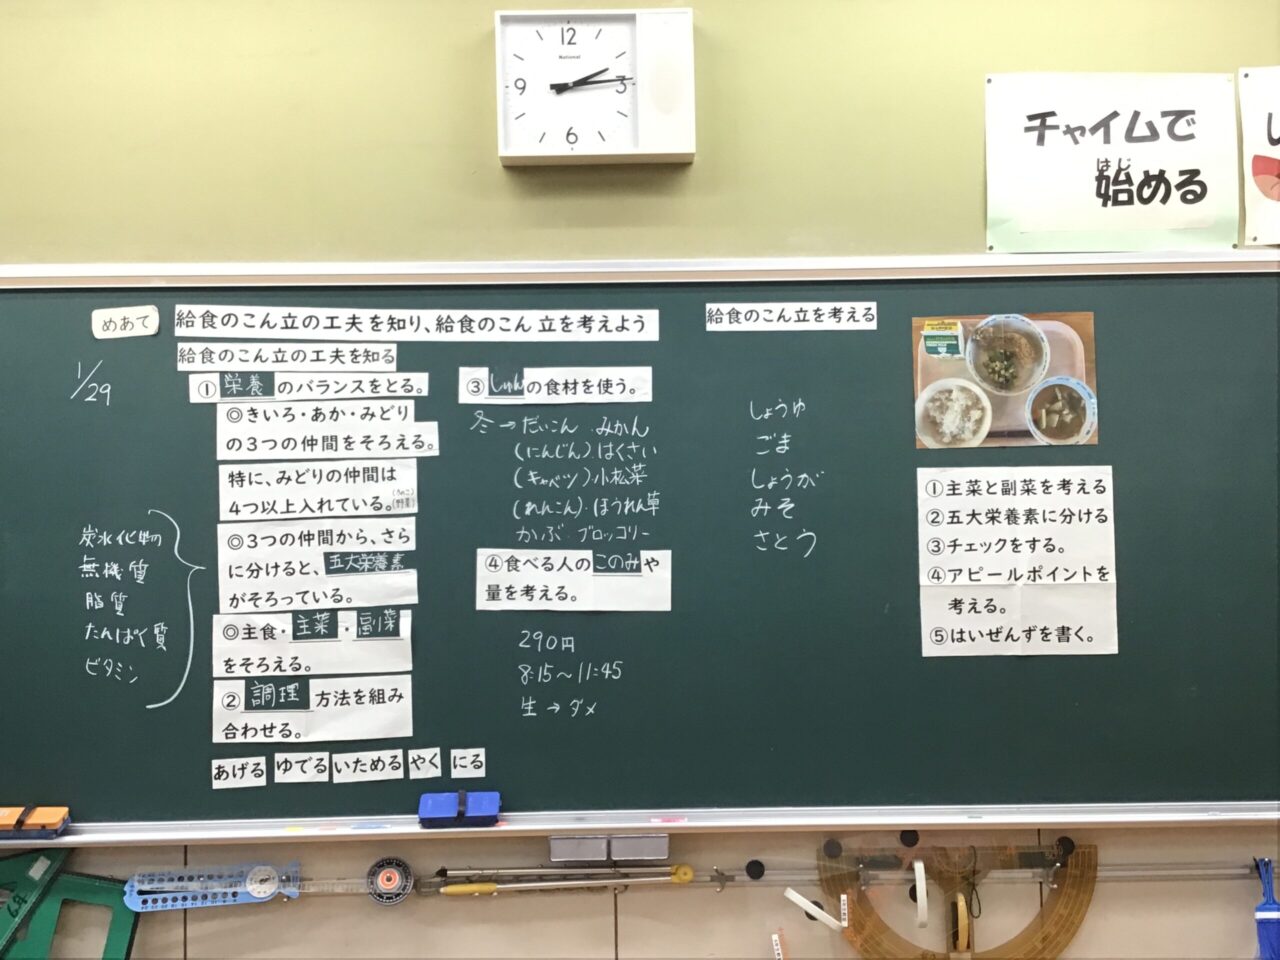 12
National
9
3
6
チャイムで
はじ
始める
めあて
給食のこん立の工夫を知り、給食のこん立を考えよう
1/29
給食のこん立の工夫を知る
①栄養のバランスをとる。
◎きいろ・あか・みどり
の3つの仲間をそろえる。
特に、みどりの仲間は
4つ以上入れている。
(野菜)
◎3つの仲間から、さら
に分けると、五大栄養素
がそろっている。
炭水化物
無機質
脂質
たんぱく質
ビタミン
◎主食・主菜・副菜
をそろえる。
②調理方法を組み
合わせる。
あげる ゆでる いためる やく にる
③しゅんの食材を使う。
冬→だいこん・みかん
(にんじん)・はくさい
(キャベツ)小松菜
(れんこん)・ほうれん草
かぶ ブロッコリー
④食べる人のこのみや
量を考える。
290円
8:15〜11:45
生→ダメ
給食のこん立を考える
しょうゆ
ごま
しょうが
みそ
さとう
①主菜と副菜を考える
②五大栄養素に分ける
③チェックをする。
④アピールポイントを
考える。
⑤はいぜんずを書く。